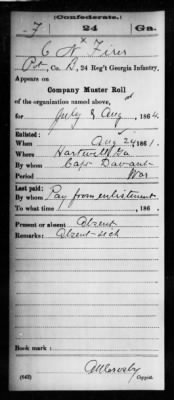 (Confederate.)
F 24 Ga.
C N Firer
Pvt, Co. B, 24 Reg't Georgia Infantry.
Appears on
Company Muster Roll
of the organization named above,
for July & Aug, 1864.
Enlisted:
When Aug 24, 1861.
Where Hartwell Ga
By whom Capt Davant
Period War
Last paid:
By whom Pay from enlistment
To what time , 186 .
Present or absent Absent
Remarks: Absent-sick
Book mark:
(642) Copyist.